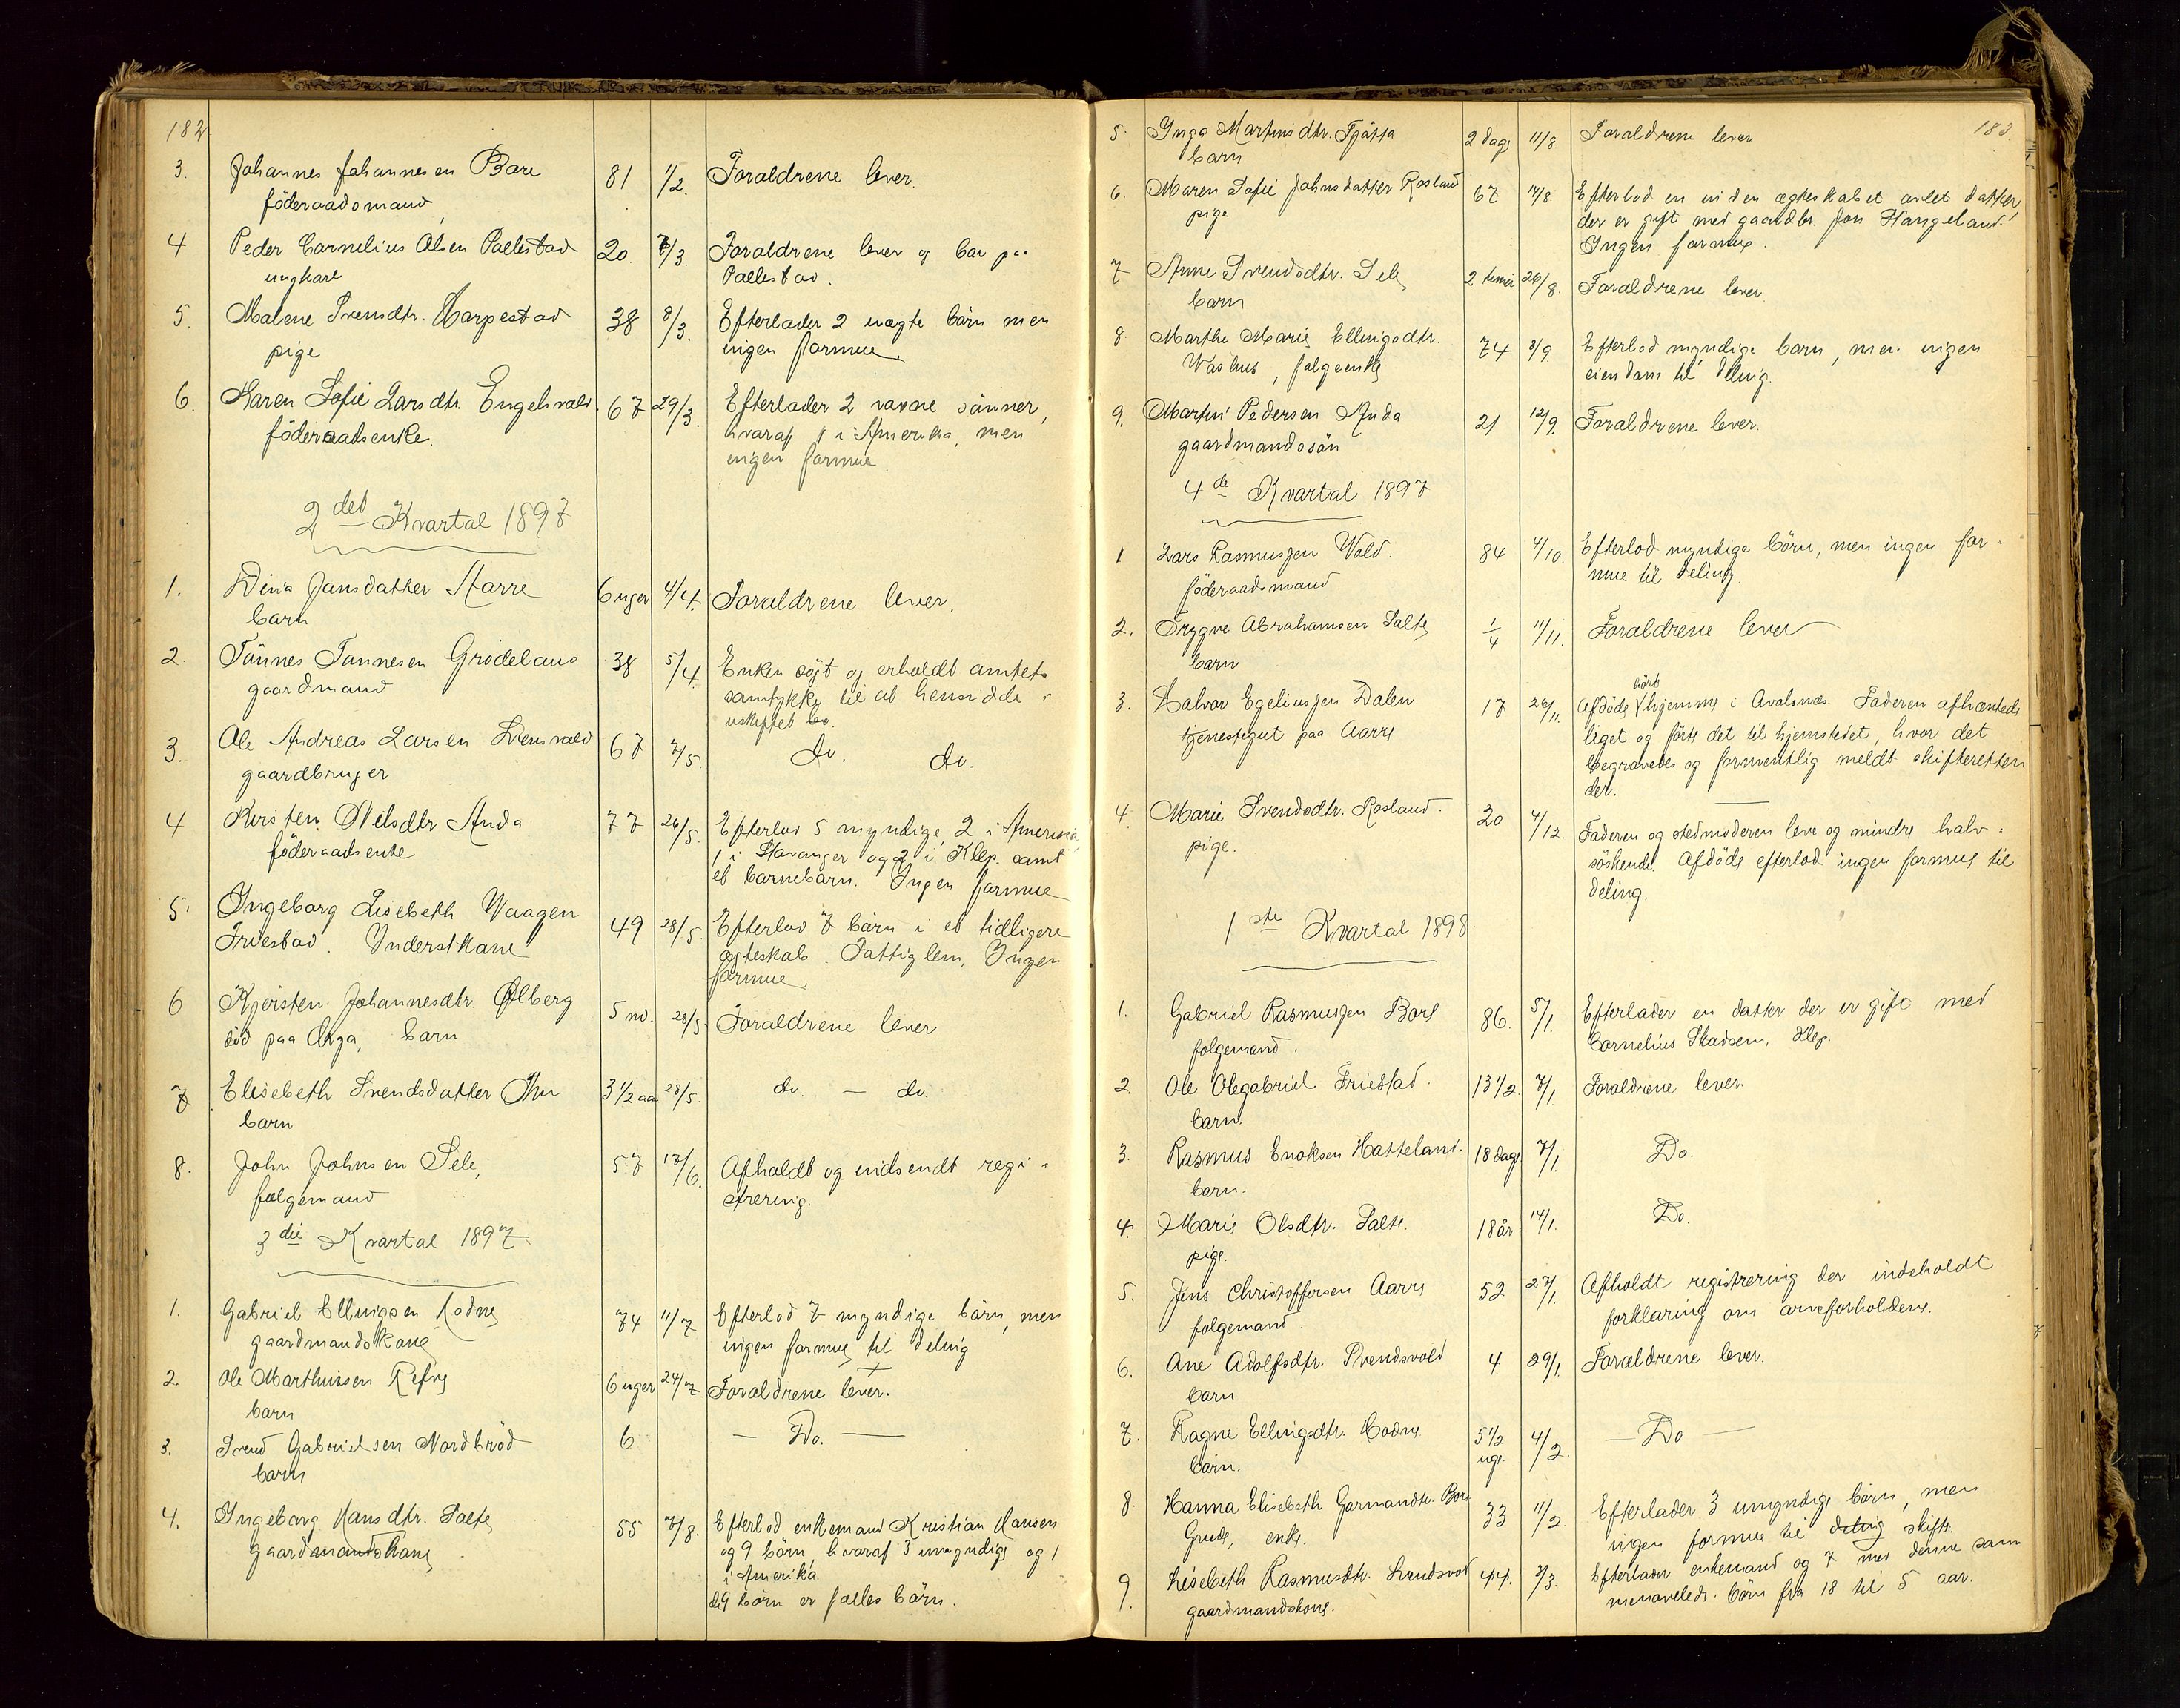 182
3. Johannes Johannesen Bore 81 1/2. Foraldrene lever.
föderaadsmand
4 Peder Cornelius Olsen Pallestad 20. 7/3. Foraldrene lever og bor paa
ungkarl Pallestad.
5. Malene Svendsdtr. Harpestad 38 8/3. Efterlader 2 uægte börn men
pige ingen formue.
6. Karen Sofie Larsdtr. Engelsvold. 67 29/3. Efterlader 2 vaxne sönner,
föderaadsenke. hvoraf 1 i Amerika, men
ingen formue
2det Kvartal 1897
1. Dina Jansdatter Aarre 6 uger 4/4. Foraldrene lever.
barn
2. Tönnes Tonnesen Grödeland 38 5/4. Enken sögt og erholdt amtets
gaardmand samtykke til at hensidde i
uskiftet bo.
3. Ole Andreas Larsen Svensvold 67 7/5. do. do.
gaardbruger
4 Kirsten Nilsdtr Anda 77 26/5. Efterlod 5 myndige, 2 i Amerika
föderaadsenke 1 i Stavanger og 2 i Klep. samt
et barnebarn. Ingen formue
5. Ingeborg Lisebeth Vaagen 49 28/5. Efterlod 7 börn i et tidligere
Friestad. Inderstkone ægteskab. Fattiglem, Ingen
formue.
6 Kjersten Johannesdtr. Ölberg 5 md. 28/5. Foraldrene lever
död paa Orga, barn
7. Elisebeth Svendsdatter Thu 3 1/2 aar 28/5. do. — do.
barn
8. John Johnsen Sele, 57 17/6. Afholdt og indsendt regi-
folgemand strering.
3die Kvartal 1897
1. Gabriel Ellingsen Hodne 74 11/7 Efterlod 7 myndige börn, men
gaardmandskone ingen formue til deling
2. Ole Marthinsen Refve 6 uger 24/7 Foraldrene lever.
barn
3. Svend Gabrielsen Nordbröd 6 — Do. —
barn
4. Ingeborg Hansdtr. Salte 55 7/8. Efterlod enkemand Kristian Hansen
gaardmandskone og 9 börn, hvoraf 3 umyndige og 1
i Amerika.
de 9 börn er falles börn.
183
5. Inga Martinsdtr. Tjötta 2 dage 11/8. Foraldrene lever
barn
6. Maren Sofie Johnsdatter Rosland 67 14/8. Efterlod en uden ægteskabet avlet datter,
pige der er gift med gaardbr. Jon Haugeland.
Ingen formue.
7 Anne Svendsdtr. Sele 2 timer 26/8. Foraldrene lever.
barn
8. Marthe Marie Ellingsdtr. 74 3/9. Efterlod myndige barn, men ingen
Vashus, folgeenke eiendom til deling.
9. Martin Pedersen Anda 21 12/9. Foraldrene lever.
gaardmandssön
4de Kvartal 1897
1 Lars Rasmussen Vold. 84 4/10. Efterlod myndige börn, men ingen for-
föderaadsmand mue til deling.
2. Trygve Abrahamsen Salte 1/4 11/11. Foraldrene lever
barn
3. Halvor Egeliussen Dalen 17 26/11. Afdöde hört hjemme i Avalsnæs. Faderen afhæntede
tjenestegut paa Aarre liget og förte det til hjemstedet, hvor det
begravedes og formentlig meldt skifteretten
der.
4. Marie Svendsdtr. Rosland. 20 4/12. Faderen og stedmoderen leve og mindre halv-
pige. söskende. Afdöde efterlod ingen formue til
deling.
1ste Kvartal 1898
1. Gabriel Rasmussen Bore 86. 5/1. Efterlader en datter der er gift med
folgemand. Cornelius Skadsem, Klep.
2 Ole Olegabriel Friestad. 13 1/2. 7/1. Foraldrene lever.
barn.
3. Rasmus Enoksen Hatteland. 18 dage 7/1. Do.
barn.
4. Marie Olsdtr. Salte. 18 år 14/1. Do.
pige.
5. Jens Christoffersen Aarre 52 27/1. Afholdt registrering der indeholdt
folgemand. forklaring om arveforholdene.
6. Ane Adolfsdtr. Svendsvold 4 29/1. Forældrene lever.
barn
7. Ragne Ellingsdtr. Hodne 5 1/2 uge. 4/2. — Do —
barn.
8. Hanna Elisebeth Garmandtr. Bore 33 11/2. Efterlader 3 umyndige börn, men
Grude, enke. ingen formue til deling skifte.
9. Lisebeth Rasmusdtr. Svendsvol 44. 3/3. Efterlader enkemand og 7 med denne sam
gaardmandskone. menavlede börn fra 18 til 5 aar.